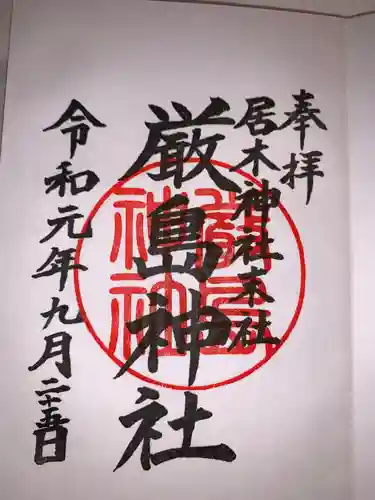 奉拝
居木神社末社
厳島神社
令和元年九月二十五日
厳島神社